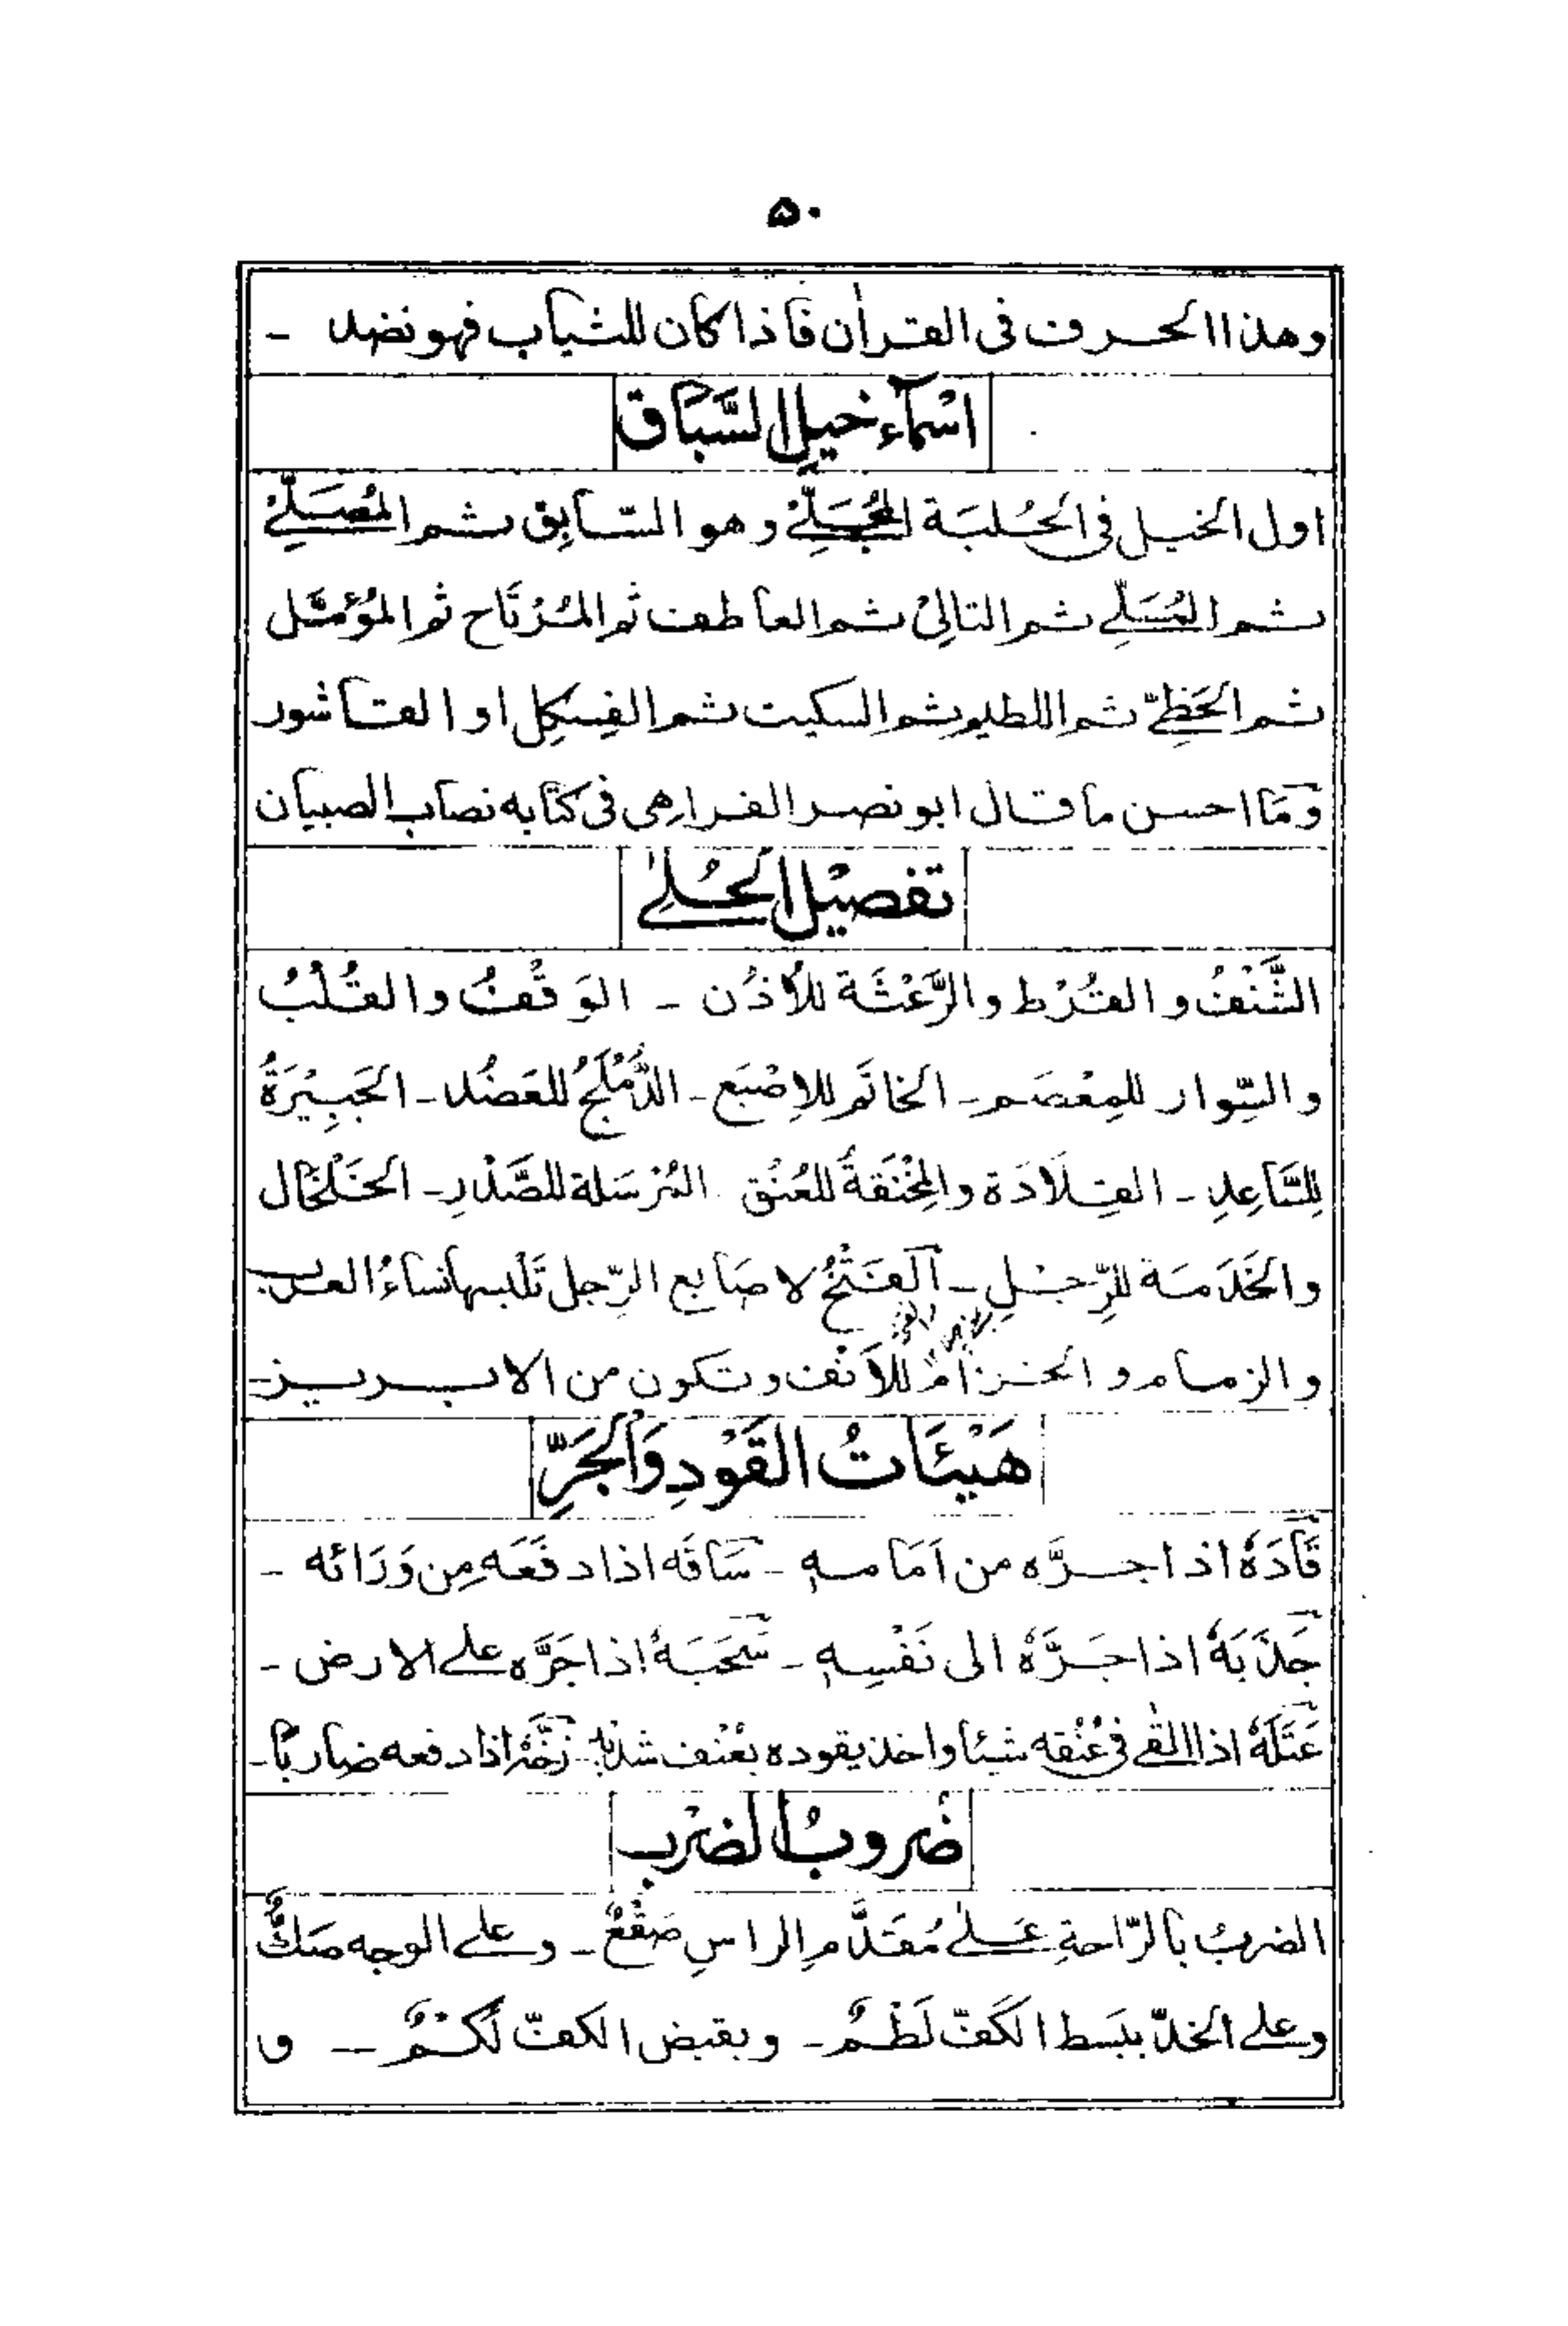 ۵۰
وهذا الحرف فى القراٰن فاذا كان للثياب فهو نضد -
اسمآء خيل السَّبَاق
اول الخيل فى الحُلبَة المُجَلِّىْ وهو السّابِق ثم المُصَلِّىْ
ثم المُسَلِّى ثم التالِىْ ثم العاطف ثم المُرْتَاح ثم المُؤمَّل
ثم الحَظِىّ ثم اللطيم ثم السكيت ثم الفِسكِل او القاشور
وَمَا احسن ما قال ابو نصر الفراهى فى كتابه نصاب الصبيان
تفصيْل الحُلِىٰ
الشَّنْفُ و القُرْط والرَّعْثَة للاُذُن - الوَقْفُ والقُلْبُ
والسِّوار للمِعْصَم - الخاتَم للاِصْبَع - الدُّمْلُجُ للعَضُد - الجَبِيْرَةُ
لِلسَّاعِدِ - القِلَادَة والمِخْنَقَةُ للعُنُق المُرْسَلة للصَّدْرِ - الخَلْخَال
والخَدَمَة للرِّجْلِ - اَلفَتْخُ لاصَابع الرِّجل تَلْبسها نساءُ العرب
والزمام و الخزامُ للاَنْف وتكون من الابريز -
هَيْئَاتُ القَوْدِ وَالجَرِّ
قَادَهٗ اذا جرَّه من اَمَامهٖ - سَاقَه اذا دفَعَه مِن وَرَائه -
جَذَبَهٗ اذا جَرَّهٗ الى نَفْسِهٖ - سَحَبَهٗ اذا جَرَّه على الارض -
عَتَلَهٗ اذا القٰى فى عُنُقه شيئا واخذ يقوده بعُنف شديدٍ - زَخَّهٗ اذا دفعه ضاربًا -
ضروبُ الضرْب
الضربُ بالرّاحةِ عَلىٰ مُقَدَّمِ الراسِ صَقْعٌ - وعلى الوجه صَكٌّ
وعلى الخدّ ببَسط الكَفّ لَطْمٌ - وبقبض الكفّ لَكْمٌ - و